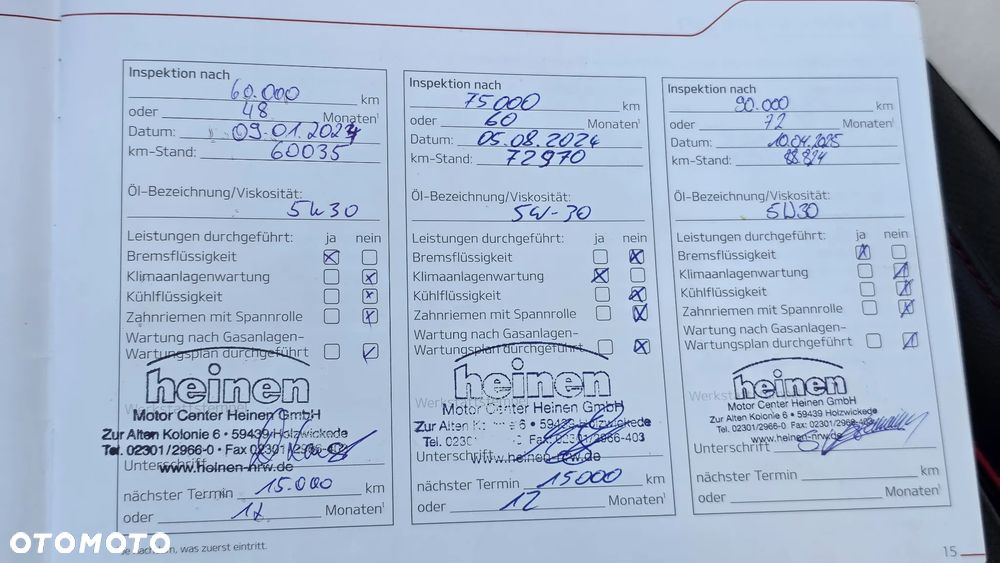 Inspektion nach
60.000 km
oder 48 Monaten¹
Datum: 09.01.2024
km-Stand: 60035
Öl-Bezeichnung/Viskosität:
5W30
Leistungen durchgeführt: ja nein
Bremsflüssigkeit
Klimaanlagenwartung
Kühlflüssigkeit
Zahnriemen mit Spannrolle
Wartung nach Gasanlagen-
Wartungsplan durchgeführt
heinen
Motor Center Heinen GmbH
Zur Alten Kolonie 6 • 59439 Holzwickede
Tel. 02301/2966-0 • Fax 02301/2966-403
www.heinen-nrw.de
Unterschrift
nächster Termin 15.000 km
oder 12 Monaten¹
Inspektion nach
75000 km
oder 60 Monaten¹
Datum: 05.08.2024
km-Stand: 72970
Öl-Bezeichnung/Viskosität:
5W-30
Leistungen durchgeführt: ja nein
Bremsflüssigkeit
Klimaanlagenwartung
Kühlflüssigkeit
Zahnriemen mit Spannrolle
Wartung nach Gasanlagen-
Wartungsplan durchgeführt
heinen
Werkstattstempel
Motor Center Heinen GmbH
Zur Alten Kolonie 6 • 59439 Holzwickede
Tel. Fax: 02301/2966-403
www.heinen-nrw.de
Unterschrift
nächster Termin 15000 km
oder 12 Monaten¹
Inspektion nach
90.000 km
oder 72 Monaten¹
Datum: 10.04.2025
km-Stand: 88.824
Öl-Bezeichnung/Viskosität:
5W30
Leistungen durchgeführt: ja nein
Bremsflüssigkeit
Klimaanlagenwartung
Kühlflüssigkeit
Zahnriemen mit Spannrolle
Wartung nach Gasanlagen-
Wartungsplan durchgeführt
heinen
Werkstattstempel
Motor Center Heinen GmbH
Zur Alten Kolonie 6 • 59439 Holzwickede
Tel. 02301/2966-0 Fax
www.heinen-nrw.de
Unterschrift
nächster Termin km
oder Monaten¹
was zuerst eintritt.
15
OTOMOTO